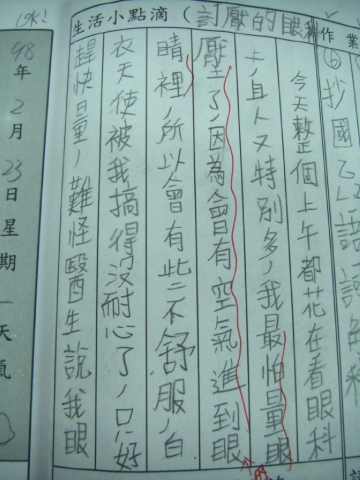 作業
⑥抄國
生活小點滴(討厭的眼科
今天整個上午都花在看眼科
上,且人又特別多,我最怕量眼
壓了,因為會有空氣進到眼
睛裡,所以會有些不舒服,白
衣天使被我搞得沒耐心了,只好
趕快量,難怪醫生說我眼
98年2月23日星期一天氣